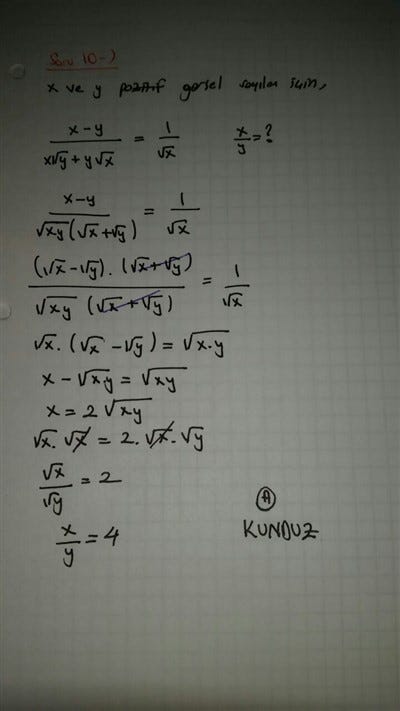 Soru 10-)
x ve y pozitif gerçel sayıları için,
x-y / x√y + y√x = 1/√x    x/y = ?
x-y / √xy (√x+√y) = 1/√x
(√x-√y). (√x+√y) / √xy (√x+√y) = 1/√x
√x. (√x-√y) = √x.y
x-√xy = √xy
x = 2√xy
√x. √x = 2. √x. √y
√x/√y = 2
x/y = 4
A
KUNDUZ